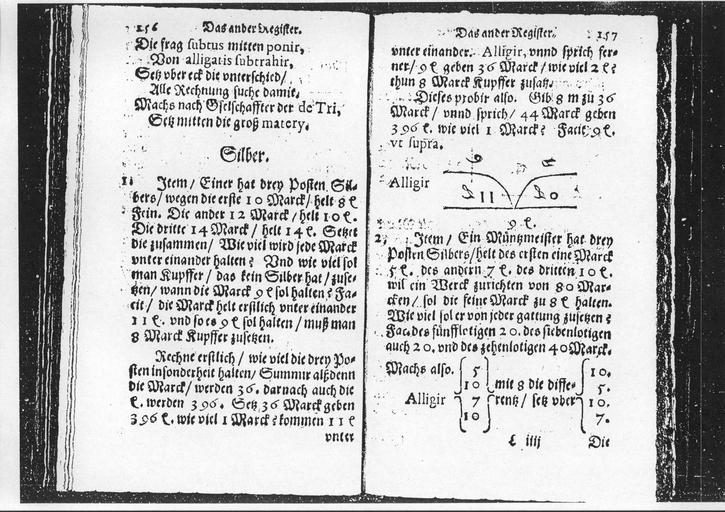 156 Das ander Register.
Die frag subtus mitten ponir,
Von alligatis subtrahir,
Setz vber eck die vnterschied/
Alle Rechnung suche damit.
Machs nach Gselschaffter der de Tri,
Setz mitten die groß matery.
Silber.
1. Item/ Einer hat drey Posten Sil-
bers/ wegen die erste 10 Marck/ helt 8 ł
Fein. Die ander 12 Marck/ helt 10 ł.
Die dritte 14 Marck/ helt 14 ł. Setzet
die zusammen/ Wie viel wird jede Marck
vnter einander halten? Vnd wie viel sol
man Kupffer/ das kein Silber hat/ zuse-
tzen/ wann die Marck 9 ł sol halten? Fa-
cit/ die Marck helt erstlich vnter einander
11 ł. vnd so es 9 ł sol halten/ muß man
8 Marck Kupffer zusetzen.
Rechne erstlich/ wie viel die drey Po-
sten insonderheit halten/ Summir alßdenn
die Marck/ werden 36. darnach auch die
ł. werden 396. Setz 36 Marck geben
396 ł. wie viel 1 Marck? kommen 11 ł
vnter
Das ander Register. 157
vnter einander. Alligir, vnnd sprich fer-
ner/ 9 ł geben 36 Marck/ wie viel 2 ł?
thun 8 Marck Kupffer zusatz.
Dieses probir also. Gib 8 m zu 36
Marck/ vnnd sprich/ 44 Marck geben
396 ł. wie viel 1 Marck? Facit 9 ł.
vt supra.
9
Alligir ł 11 ł 0
9 ł.
2. Item/ Ein Müntzmeister hat drey
Posten Silbers/ helt des ersten eine Marck
5 ł. des andern 7 ł. des dritten 10 ł.
wil ein Werck zurichten von 80 Mar-
cken/ sol die feine Marck zu 8 ł halten.
Wie viel sol er von jeder gattung zusetzen?
Fac. des fünfflotigen 20. des siebenlotigen
auch 20. vnd des zehenlotigen 40 Marck.
Machs also. 5 10.
10 mit 8 die diffe- 5.
Alligir 7 rentz/ setz vber 10.
10 7.
Ł iiij Die